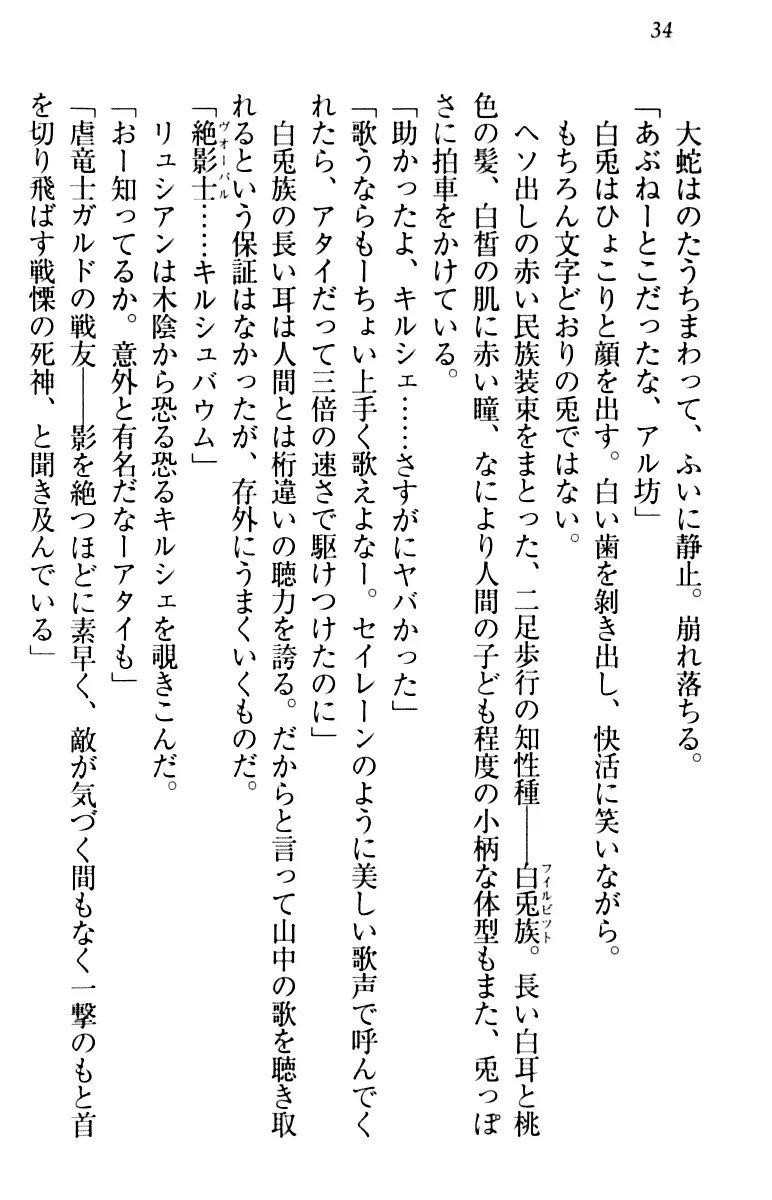 34
大蛇はのたうちまわって、ふいに静止。崩れ落ちる。
「あぶねーとこだったな、アル坊」
白兎はひょこりと顔を出す。白い歯を剝き出し、快活に笑いながら。
もちろん文字どおりの兎ではない。
ヘソ出しの赤い民族装束をまとった、二足歩行の知性種――白兎族。長い白耳と桃
フイルビツト
色の髪、白皙の肌に赤い瞳、なにより人間の子ども程度の小柄な体型もまた、兎っぽ
さに拍車をかけている。
「助かったよ、キルシェ……さすがにヤバかった」
「歌うならもーちょい上手く歌えよなー。セイレーンのように美しい歌声で呼んでく
れたら、アタイだって三倍の速さで駆けつけたのに」
白兎族の長い耳は人間とは桁違いの聴力を誇る。だからと言って山中の歌を聴き取
れるという保証はなかったが、存外にうまくいくものだ。
「絶影士……キルシュバウム」
ヴオーパル
リュシアンは木陰から恐る恐るキルシェを覗きこんだ。
「おー知ってるか。意外と有名だなーアタイも」
「虐竜士ガルドの戦友――影を絶つほどに素早く、敵が気づく間もなく一撃のもと首
を切り飛ばす戦慄の死神、と聞き及んでいる」